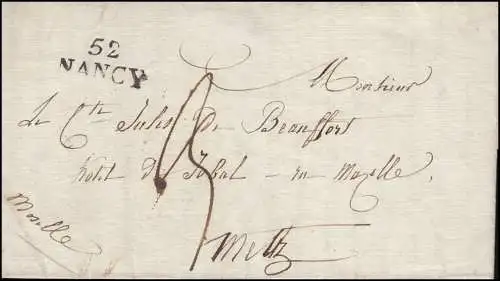 52
NANCY
Monsieur
Le Cte Jules De Beauffort
hotel d' Jobal en Mozelle,
Metz
Moselle
3